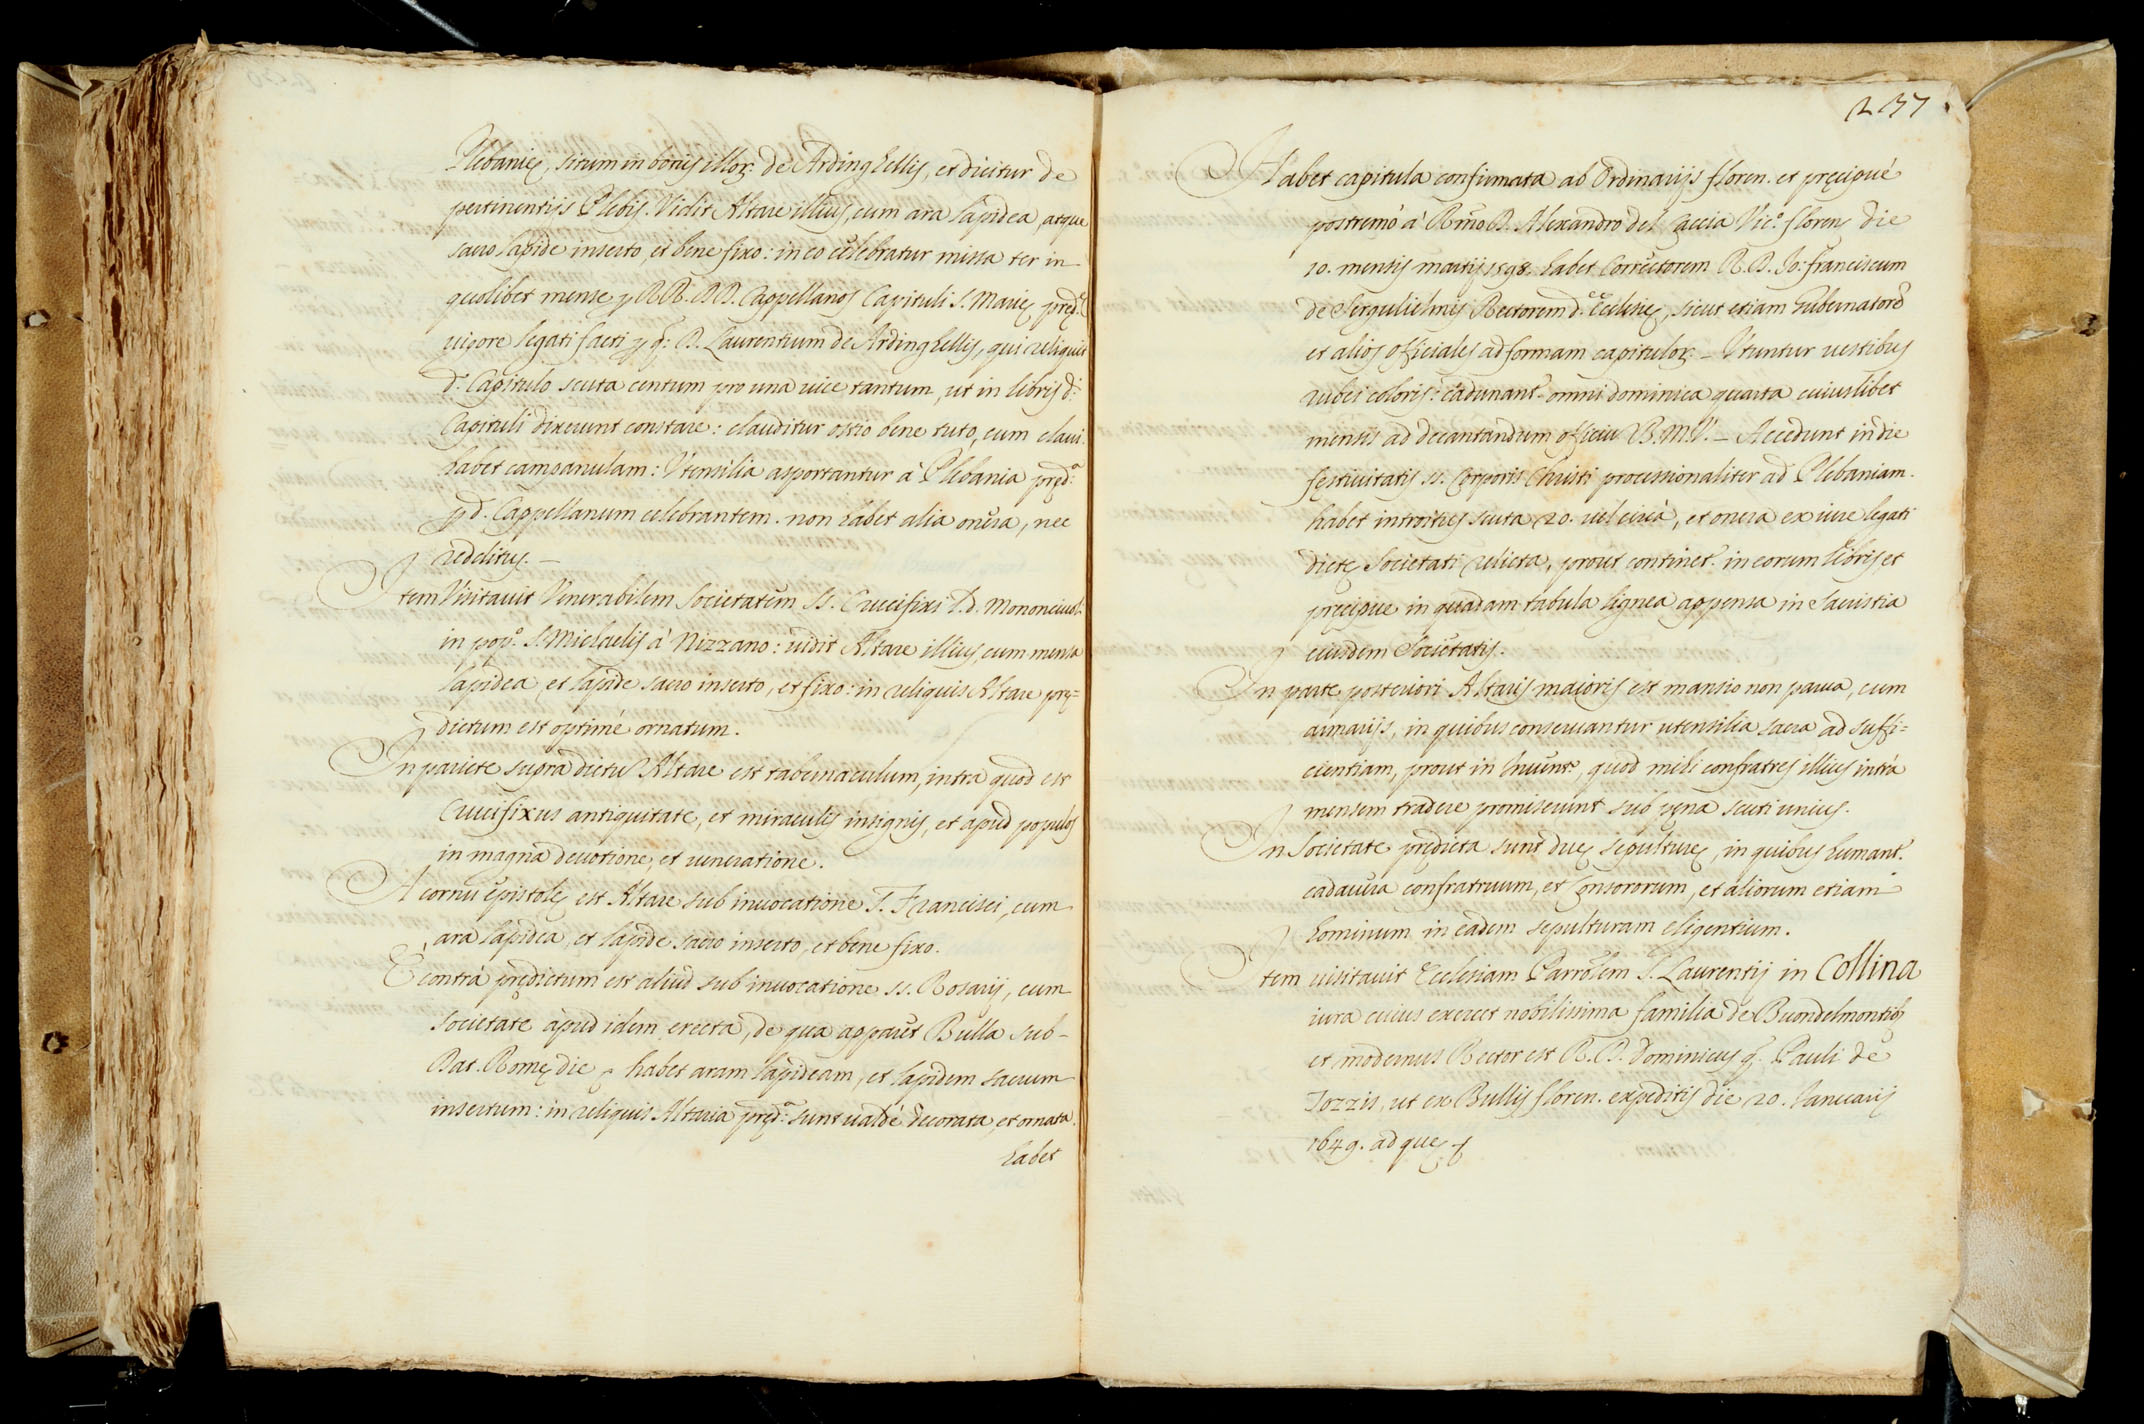 Plebanie, situm in bonis illoꝝ: de Ardinghellis, et dicitur de
pertinentijs Plebis. Vidit Altare illius, cum ara lapidea, atque
sacro lapide inserto, et bene fixo: in eo celebratur missa ter in
quolibet mense p RR. DD. Cappellanos Capituli S. Marie pred.
uigore legati facti p q: D. Laurentium de Ardinghellis, qui reliquit
d. Capitulo scuta centum pro una uice tantum, ut in libris d:
Capituli dixerunt constare: clauditur ostio bene tuto, cum claui
habet campanulam: Vtensilia asportantur à Plebania pred.
p d. Cappellanum celebrantem. non habet alia onera, nec
redditus. —
Item Visitauit Venerabilem Societatem SS. Crucifixi
in pop.º S. Michaelis à Nizzano: uidit Altare illius, cum mensa
lapidea, et lapide sacro inserto, et fixo: in reliquis Altare prę=
dictum est optimè ornatum.
In pariete supra dictũ Altare est tabernaculum, intra quod est
Crucifixus antiquitate, et miraculis insignis, et apud populos
in magna deuotione, et ueneratione.
A cornu epistolę est Altare sub inuocatione S. Francisci, cum
ara lapidea, et lapide sacro inserto, et bene fixo.
E contrà prędictum est aliud sub inuocatione SS. Rosarij, cum
societate apud idem erecta, de qua apparet Bulla sub-
Dat. Romę die habet aram lapideam, et lapidem sacrum
insertum: in reliquis Altaria pręd.ª sunt ualdè decorata, et ornata.
habet
237
Habet capitula confirmata ab Ordinarijs floren. et pręcipuè
postremò à R.mo D. Alexandro del Caccia Vic.º floren, die
10. mensis martij 1598. habet Correctorem R. D. Jo: franciscum
de Serguliehmis Rectorem d. Ecclesię, sicut etiam Gubernatorẽ
et alios officiales ad formam capituloꝝ. — Vtuntur uestibus
rubei coloris: c'adunant.r omni dominica quarta cuiuslibet
mensis ad decantandum officiũ B. M. V. — Accedunt in die
festiuitatis SS. Corporis Christi processionaliter ad Plebaniam.
habet introitus scuta 20. uel circà, et onera ex iure legati
dictę Societati relicta, prout continet.r in eorum libris, et
pręcipue in quadam tabula lignea appensa in Sacristia
eiusdem Societatis.
In parte posteriori Altaris maioris est mansio non parua, cum
armarijs, in quibus conseruantur utensilia sacra ad suffi=
cientiam, prout in Inuent.º, quod mihi confratres illius intrà
mensem tradere promiserunt sub pęna scuti unius.
In Societate prędicta sunt duę sepulturę, in quibus humant.r
cadauera confratruum, et Consororum, et aliorum etiam
hominum in eadem sepulturam eligentium.
Item uisitauit Ecclesiam Parrõlem S. Laurentij in Collina
iura cuius exercet nobilissima familia de Buondelmontibꝫ
et modernus Rector est R. D. Dominicus q. Pauli de
Tozzis, ut ex Bullis floren. expeditis die 20. Ianuarij
1649. ad que